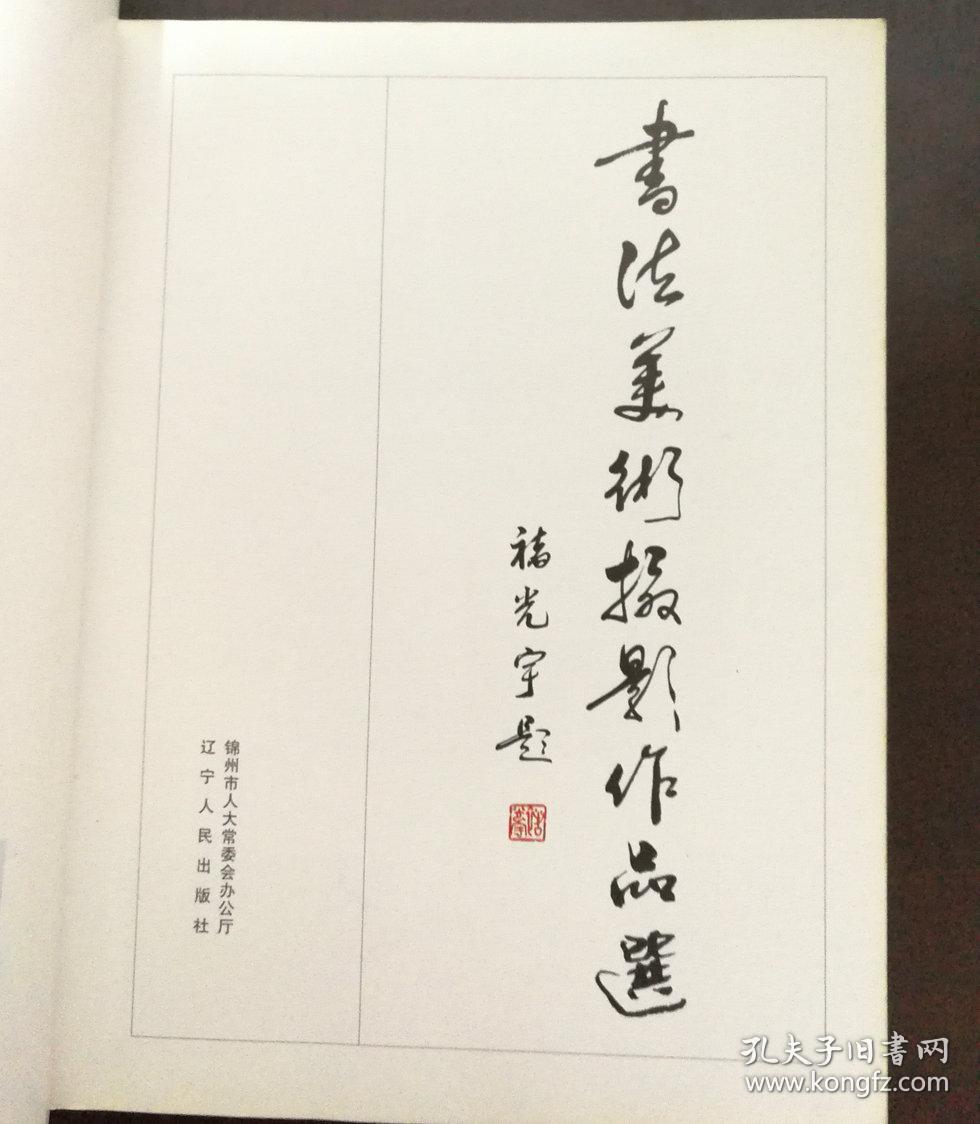 書法美術摄影作品選
禧光宇题
锦州市人大常委会办公厅
辽宁人民出版社
孔夫子旧書网
www.kongfz.com